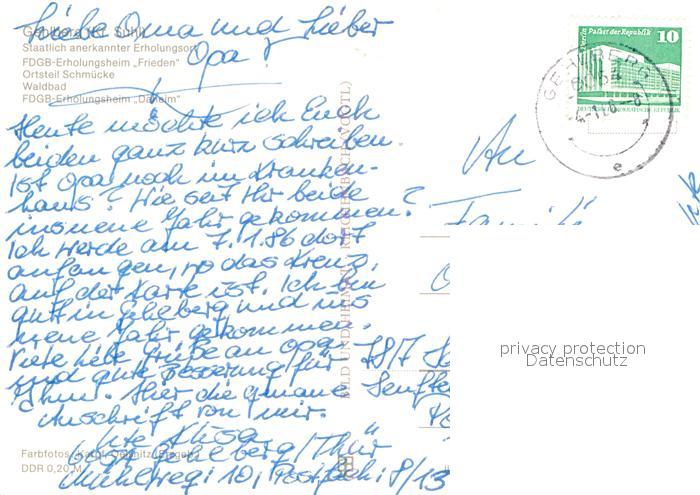 Liebe Oma und Lieber
Opa!
Gehlberg (Kr. Suhl)
Staatlich anerkannter Erholungsort
FDGB-Erholungsheim „Frieden"
Ortsteil Schmücke
Waldbad
FDGB-Erholungsheim „Daheim"
Heute möchte ich Euch
beiden ganz kurz schreiben.
Ist Opa noch im Kranken-
haus? Wie seit Ihr beide
ins neue Jahr gekommen?
Ich werde am 7.1.86 dort
anfangen, wo das Kreuz,
auf der Karte ist. Ich bin
gut in Gehlberg und ins
neue Jahr gekommen.
Viele liebe Grüße an Opa
und gute Besserung für
Ihm. Hier die genaue
Anschrift von mir.
Ute
Gehlberg/Thür
Mühlweg 10, Postfach: 8/13
Farbfotos:
DDR 0,20 M
BILD UND HEIMAT REICHENBACH (VOGTL)
Berlin Palast der Republik 10
DEUTSCHE DEMOKRATISCHE REPUBLIK
GEHLBERG
e
An
Familie
privacy protection
Datenschutz